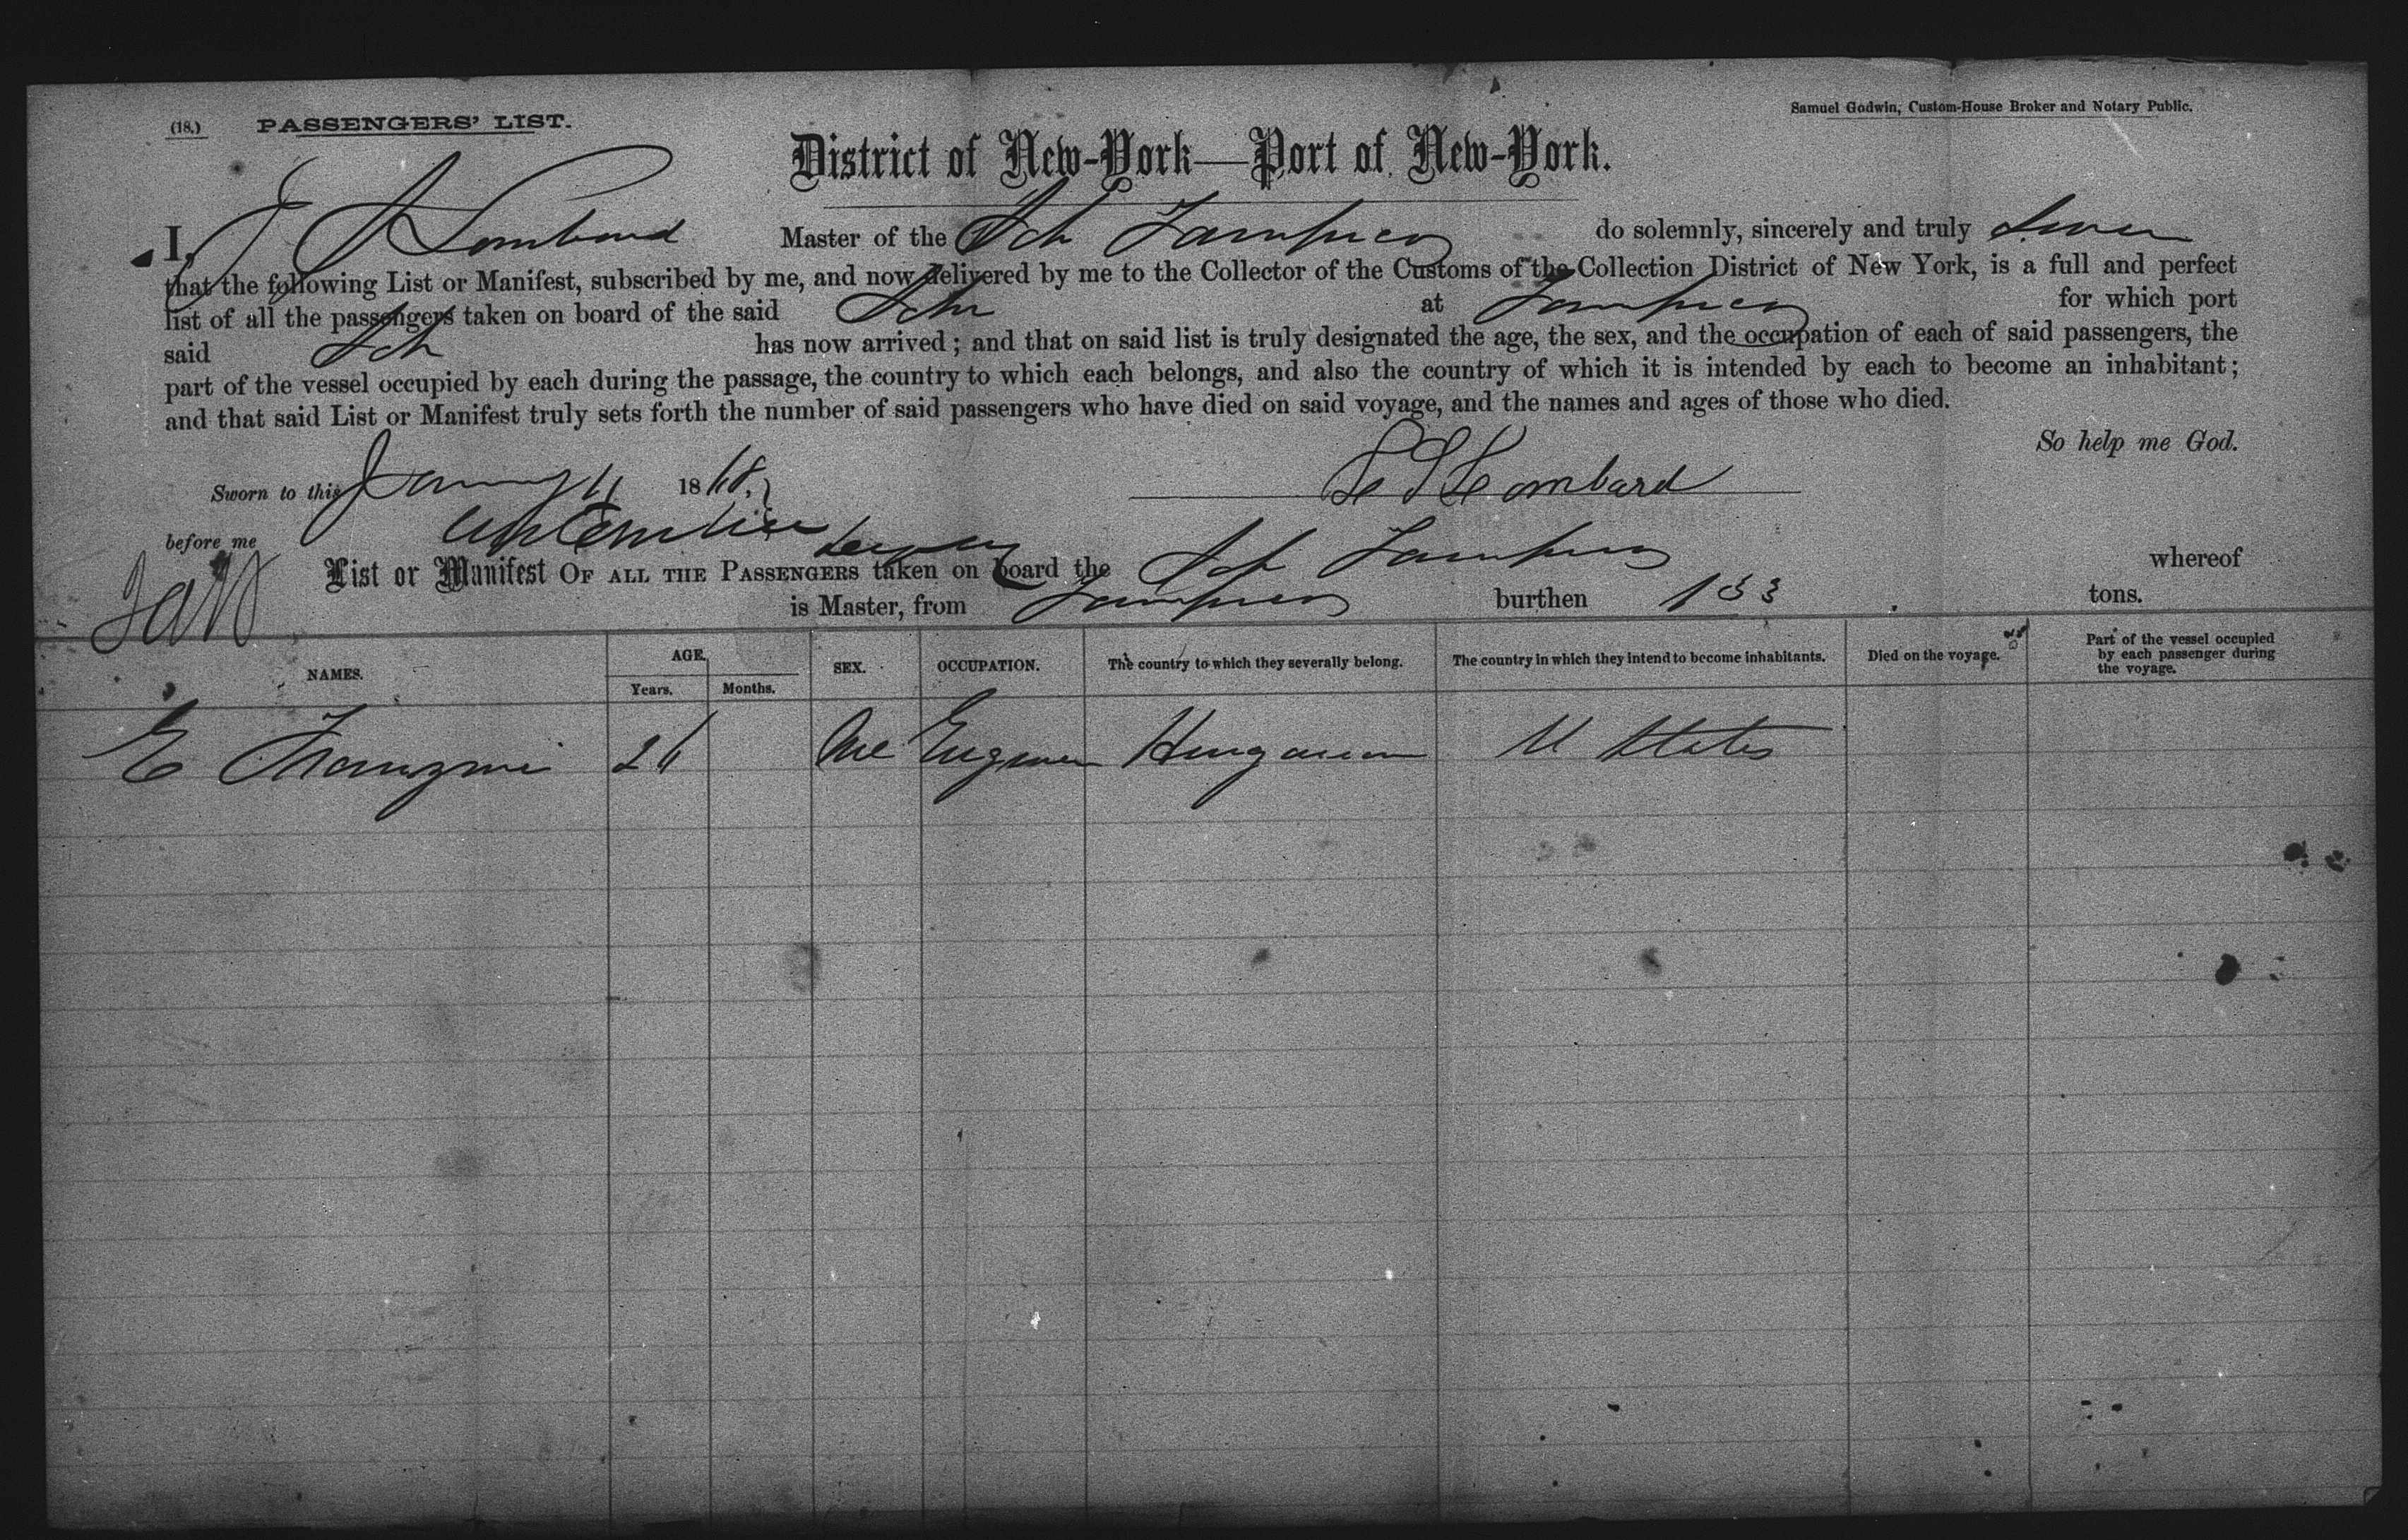 (18.) PASSENGERS' LIST.
Samuel Godwin, Custom-House Broker and Notary Public.
District of New-York—Port of New-York.
I, Lombard Master of the Sch Tampico do solemnly, sincerely and truly Swear
that the following List or Manifest, subscribed by me, and now delivered by me to the Collector of the Customs of the Collection District of New York, is a full and perfect
list of all the passengers taken on board of the said Schr at Tampico for which port
said Sch has now arrived; and that on said list is truly designated the age, the sex, and the occupation of each of said passengers, the
part of the vessel occupied by each during the passage, the country to which each belongs, and also the country of which it is intended by each to become an inhabitant;
and that said List or Manifest truly sets forth the number of said passengers who have died on said voyage, and the names and ages of those who died.
So help me God.
Sworn to this January 11 1868. Lombard
before me
List or Manifest OF ALL THE PASSENGERS taken on board the Sch Tampico whereof
is Master, from Tampico burthen 133 tons.
NAMES. AGE. Years. Months. SEX. OCCUPATION. The country to which they severally belong. The country in which they intend to become inhabitants. Died on the voyage. Part of the vessel occupied by each passenger during the voyage.
E 26 Engineer Hungarian U States